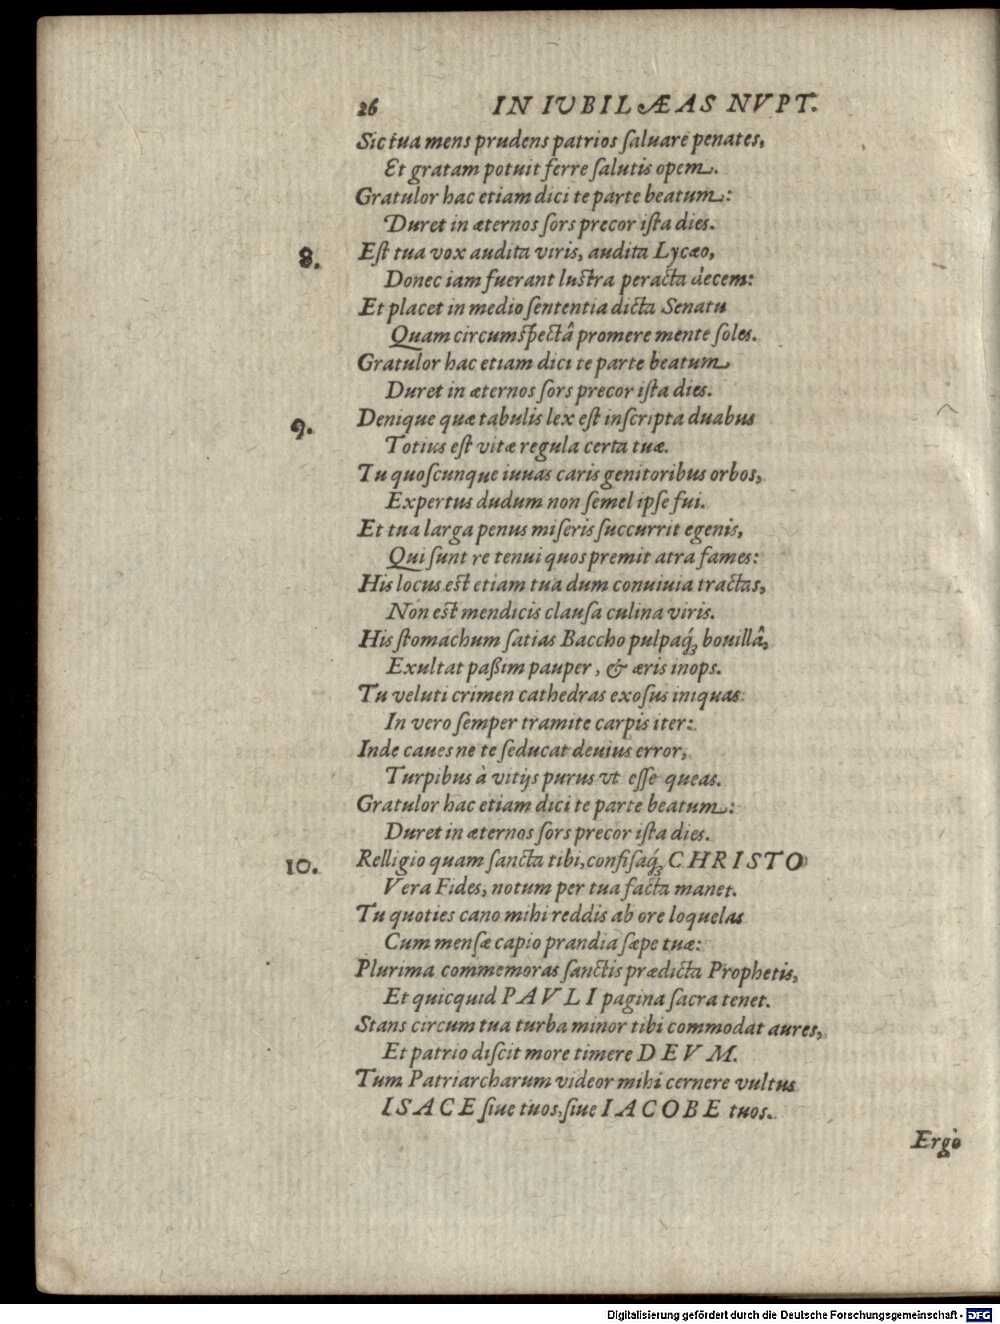 26 IN IVBILÆAS NVPT.
Sic tua mens prudens patrios ſaluare penates,
Et gratam potuit ferre ſalutis opem.
Gratulor hac etiam dici te parte beatum:
Duret in æternos ſors precor iſta dies.
8. Eſt tua vox audita viris, audita Lycæo,
Donec iam fuerant luſtra peracta decem:
Et placet in medio ſententia dicta Senatu
Quam circumſpectâ promere mente ſoles.
Gratulor hac etiam dici te parte beatum
Duret in æternos ſors precor iſta dies.
9. Denique quæ tabulis lex eſt inſcripta duabus
Totius eſt vitæ regula certa tuæ.
Tu quoſcunque iuuas caris genitoribus orbos,
Expertus dudum non ſemel ipſe fui.
Et tua larga penus miſeris ſuccurrit egenis,
Qui ſunt re tenui quos premit atra fames:
His locus eſt etiam tua dum conuiuia tractas,
Non eſt mendicis clauſa culina viris.
His ſtomachum ſatias Baccho pulpaq́; bouillâ,
Exultat paßim pauper, & æris inops.
Tu veluti crimen cathedras exoſus iniquas
In vero ſemper tramite carpis iter:
Inde caues ne te ſeducat deuius error,
Turpibus à vitijs purus vt eſſe queas.
Gratulor hac etiam dici te parte beatum:
Duret in æternos ſors precor iſta dies.
10. Relligio quam ſancta tibi, confiſaq́; CHRISTO
Vera Fides, notum per tua facta manet.
Tu quoties cano mihi reddis ab ore loquelas
Cum menſæ capio prandia ſæpe tuæ:
Plurima commemoras ſanctis prædicta Prophetis,
Et quicquid PAVLI pagina ſacra tenet.
Stans circum tua turba minor tibi commodat aures,
Et patrio diſcit more timere DEVM.
Tum Patriarcharum videor mihi cernere vultus
ISACE ſiue tuos, ſiue IACOBE tuos.
Ergò
Digitalisierung gefördert durch die Deutsche Forschungsgemeinschaft - DFG